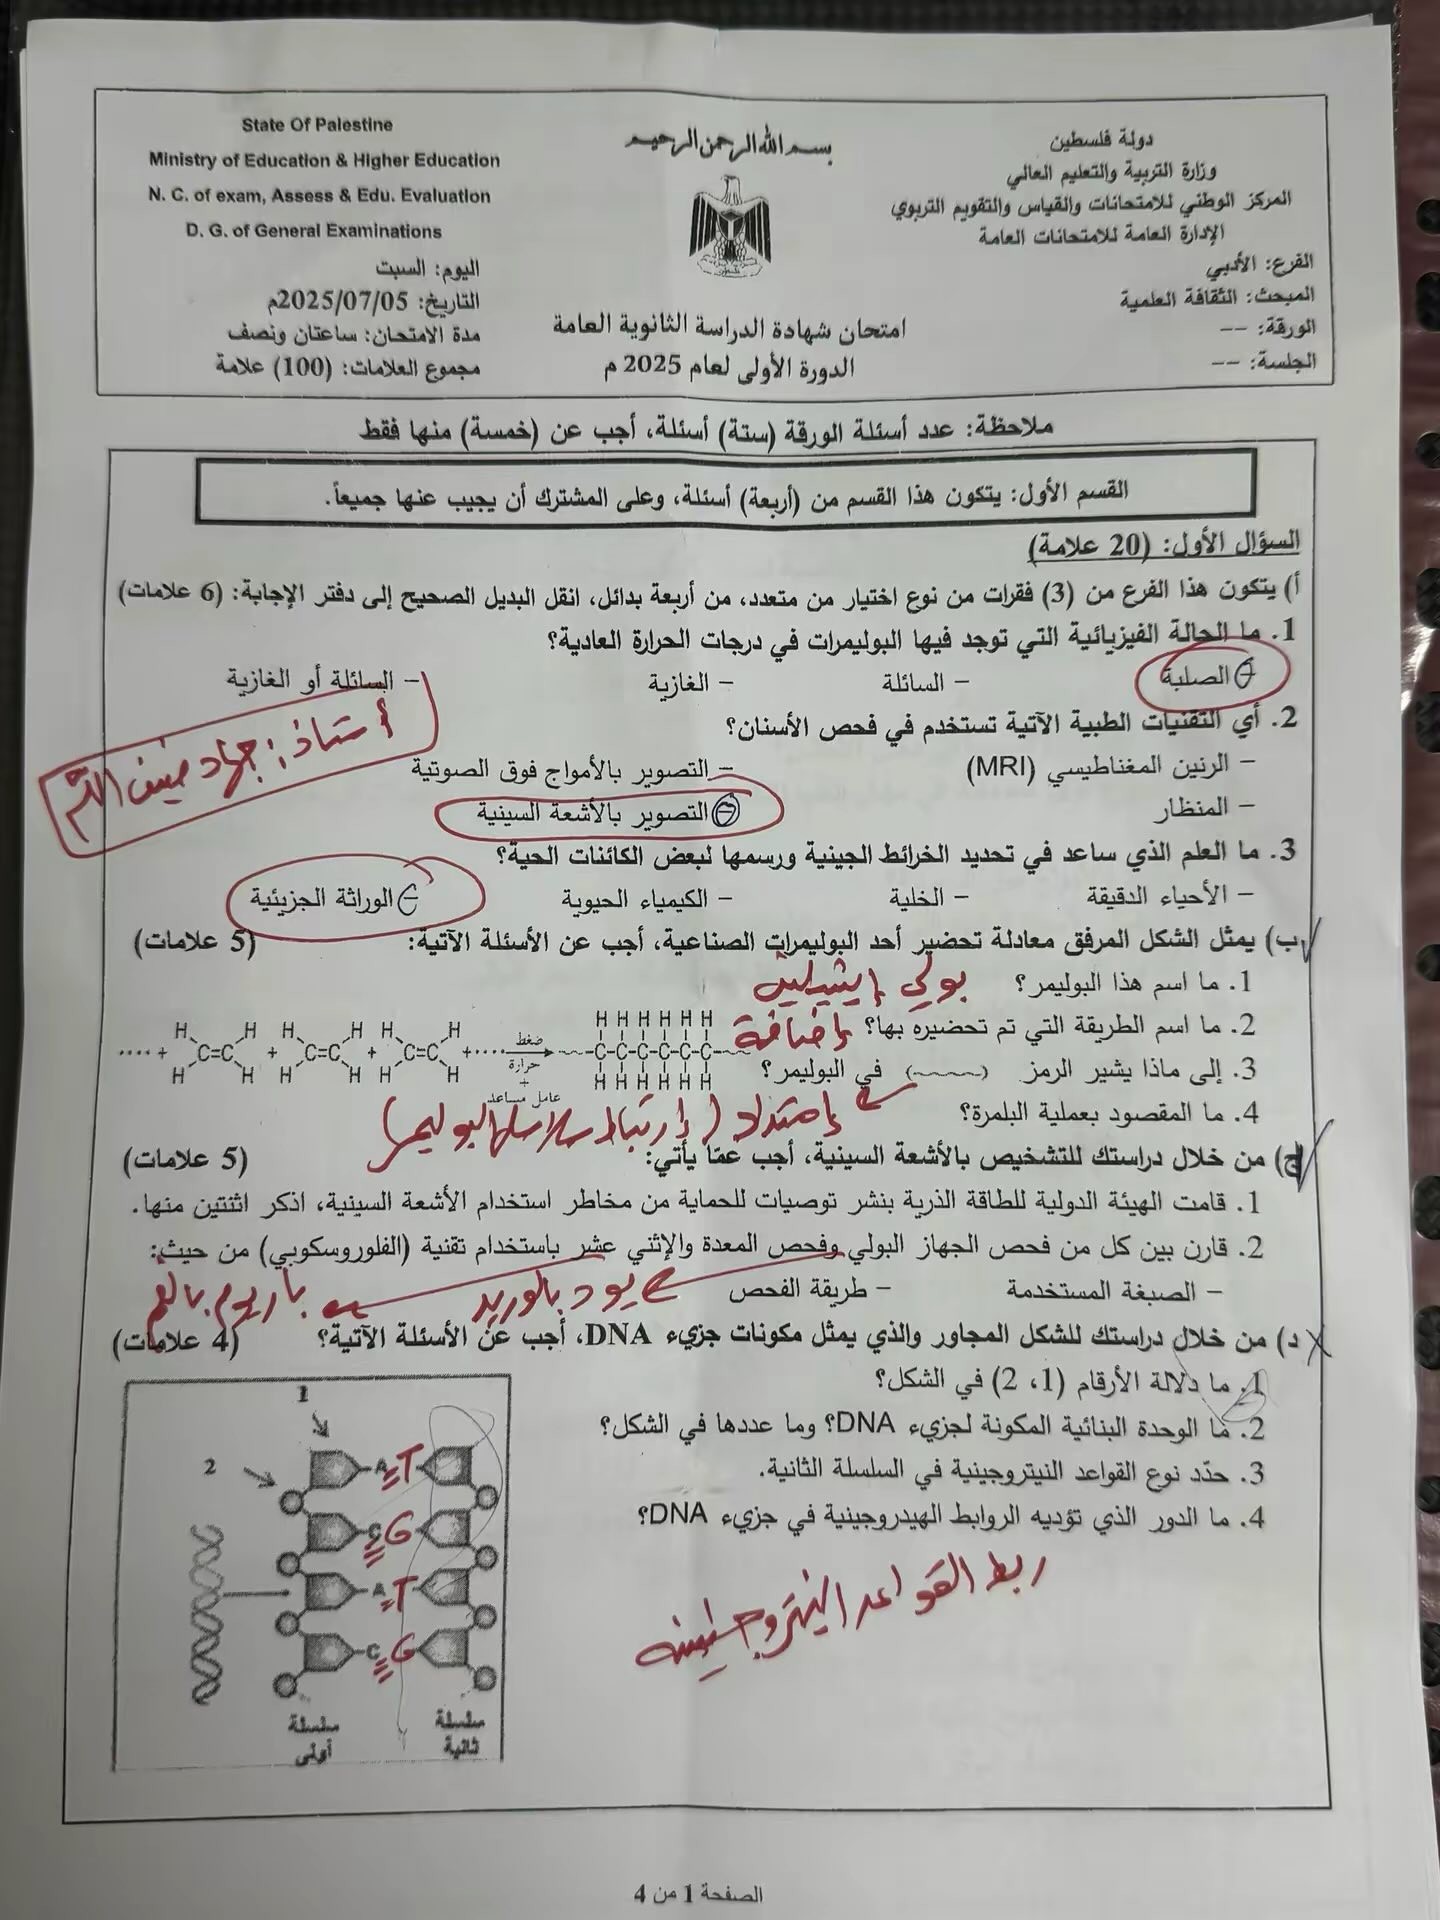 State Of Palestine
Ministry of Education & Higher Education
N. C. of exam, Assess & Edu. Evaluation
D. G. of General Examinations
اليوم: السبت
التاريخ: 2025/07/05م
مدة الامتحان: ساعتان ونصف
مجموع العلامات: (100) علامة
بسم الله الرحمن الرحيم
امتحان شهادة الدراسة الثانوية العامة
الدورة الأولى لعام 2025 م
دولة فلسطين
وزارة التربية والتعليم العالي
المركز الوطني للامتحانات والقياس والتقويم التربوي
الإدارة العامة للامتحانات العامة
الفرع: الأدبي
المبحث: الثقافة العلمية
الورقة: --
الجلسة: --
ملاحظة: عدد أسئلة الورقة (ستة) أسئلة، أجب عن (خمسة) منها فقط
القسم الأول: يتكون هذا القسم من (أربعة) أسئلة، وعلى المشترك أن يجيب عنها جميعاً.
السؤال الأول: (20 علامة)
أ) يتكون هذا الفرع من (3) فقرات من نوع اختيار من متعدد، من أربعة بدائل، انقل البديل الصحيح إلى دفتر الإجابة: (6 علامات)
1. ما الحالة الفيزيائية التي توجد فيها البوليمرات في درجات الحرارة العادية؟
- الصلبة - السائلة - الغازية - السائلة أو الغازية
2. أي التقنيات الطبية الآتية تستخدم في فحص الأسنان؟
أستاذ: جهاد ضيف الله
- الرنين المغناطيسي (MRI) - التصوير بالأمواج فوق الصوتية
- المنظار - التصوير بالأشعة السينية
3. ما العلم الذي ساعد في تحديد الخرائط الجينية ورسمها لبعض الكائنات الحية؟
- الأحياء الدقيقة - الخلية - الكيمياء الحيوية - الوراثة الجزيئية
ب) يمثل الشكل المرفق معادلة تحضير أحد البوليمرات الصناعية، أجب عن الأسئلة الآتية: (5 علامات)
1. ما اسم هذا البوليمر؟ بولي إيثيلين
2. ما اسم الطريقة التي تم تحضيره بها؟ إضافة
3. إلى ماذا يشير الرمز (~~~~) في البوليمر؟
ضغط
حرارة
+
عامل مساعد
إمتداد (إرتباط سلاسل البوليمر)
4. ما المقصود بعملية البلمرة؟
ج) من خلال دراستك للتشخيص بالأشعة السينية، أجب عمّا يأتي: (5 علامات)
1. قامت الهيئة الدولية للطاقة الذرية بنشر توصيات للحماية من مخاطر استخدام الأشعة السينية، اذكر اثنتين منها.
2. قارن بين كل من فحص الجهاز البولي وفحص المعدة والإثني عشر باستخدام تقنية (الفلوروسكوبي) من حيث:
- الصبغة المستخدمة - طريقة الفحص يود بالوريد باريوم بالفم
د) من خلال دراستك للشكل المجاور والذي يمثل مكونات جزيء DNA، أجب عن الأسئلة الآتية؟ (4 علامات)
1. ما دلالة الأرقام (1، 2) في الشكل؟
2. ما الوحدة البنائية المكونة لجزيء DNA؟ وما عددها في الشكل؟
3. حدّد نوع القواعد النيتروجينية في السلسلة الثانية.
4. ما الدور الذي تؤديه الروابط الهيدروجينية في جزيء DNA؟
ربط القواعد النيتروجينية
1
2
A=T
C≡G
A=T
C≡G
سلسلة أولى
سلسلة ثانية
الصفحة 1 من 4